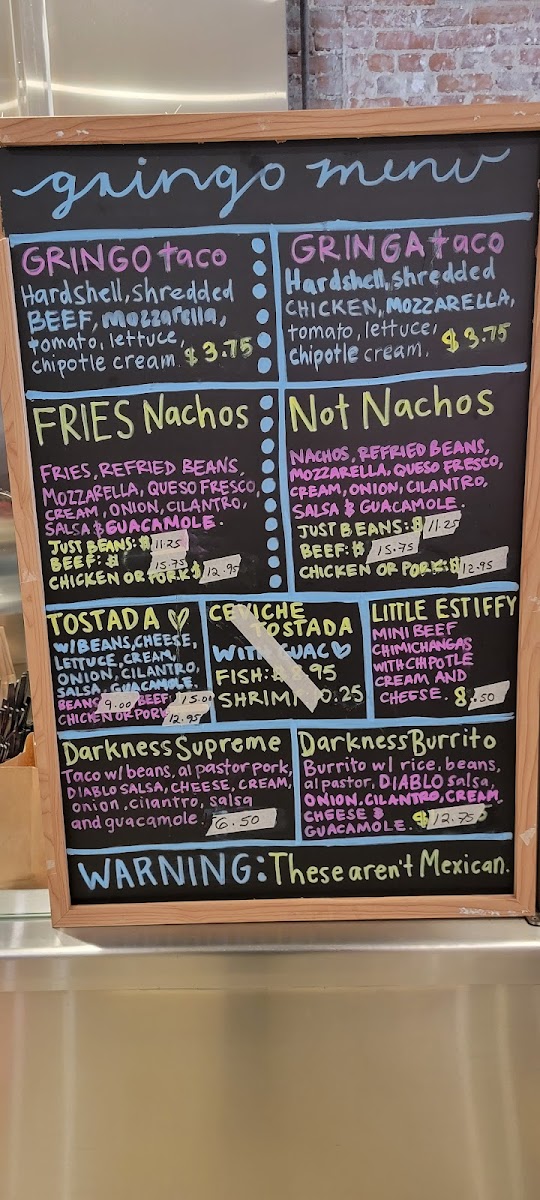 gringo menu
GRINGO taco
Hardshell, shredded
BEEF, mozzarella,
tomato, lettuce,
chipotle cream. $3.75
GRINGA taco
Hardshell, shredded
CHICKEN, MOZZARELLA,
tomato, lettuce,
chipotle cream. $3.75
FRIES Nachos
FRIES, REFRIED BEANS,
MOZZARELLA, QUESO FRESCO,
CREAM, ONION, CILANTRO,
SALSA & GUACAMOLE.
JUST BEANS: $ 11.25
BEEF: $ 15.75
CHICKEN OR PORK: $ 12.95
Not Nachos
NACHOS, REFRIED BEANS,
MOZZARELLA, QUESO FRESCO,
CREAM, ONION, CILANTRO,
SALSA & GUACAMOLE.
JUST BEANS: $ 11.25
BEEF: $ 15.75
CHICKEN OR PORK: $ 12.95
TOSTADA
W/BEANS, CHEESE,
LETTUCE, CREAM,
ONION, CILANTRO,
SALSA, GUACAMOLE.
BEANS 9.00 BEEF 15.00
CHICKEN OR PORK 12.95
CEVICHE
TOSTADA
WITH GUAC
FISH: 8.95
SHRIMP 0.25
LITTLE ESTIFFY
MINI BEEF
CHIMICHANGAS
WITH CHIPOTLE
CREAM AND
CHEESE. 8.50
Darkness Suprome
Taco w/ beans, al pastor pork,
DIABLO SALSA, CHEESE, CREAM,
onion, cilantro, salsa
and guacamole. 6.50
Darkness Burrito
Burrito w/ rice, beans,
al pastor, DIABLO salsa,
ONION, CILANTRO, CREAM,
CHEESE &
GUACAMOLE. $12.75
WARNING: These aren't Mexican.